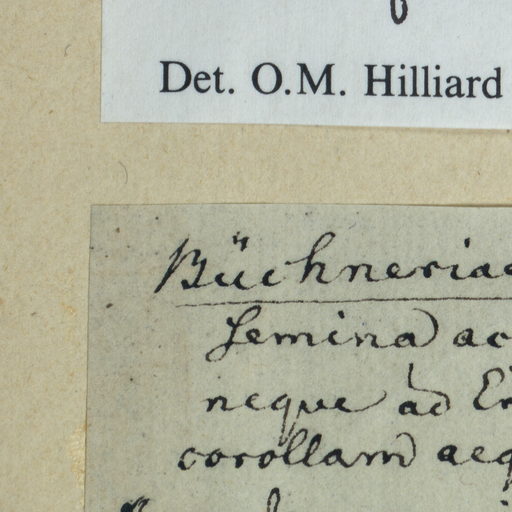 Det. O.M. Hilliard
Büchneriae
Semina ac
neque ad
corollam aeq